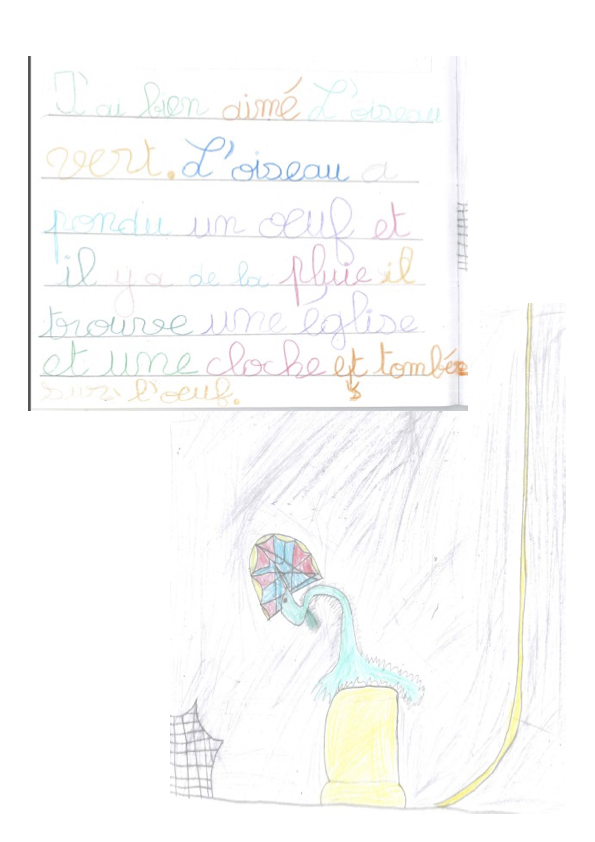 J'ai bien aimé L'oiseau
vert. L'oiseau a
pondu un oeuf et
il y a de la pluie il
trouve une église
et une cloche est tombée
sur l'oeuf.